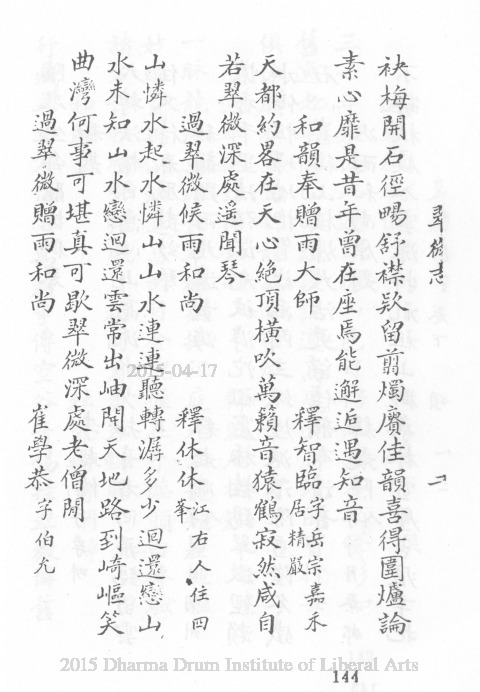 翠微志
袂梅開石徑暢舒襟欵留剪燭賡佳韻喜得圍爐論
素心靡是昔年曾在座焉能邂逅遇知音
和韻奉贈雨大師　釋智臨字岳宗嘉禾居精嚴
天都約畧在天心絶頂橫吹萬籟音猿鶴寂然咸自
若翠微深處遥聞琴
過翠微候雨和尚　釋休休江右人住四峯
山憐水起水憐山山水連連聽轉潺多少迴還戀山
水未知山水戀迴還雲常出岫開天地路到崎嶇笑
曲灣何事可堪真可歇翠微深處老僧閒
過翠微贈雨和尚　崔學恭字伯允
2015-04-17
2015 Dharma Drum Institute of Liberal Arts
144